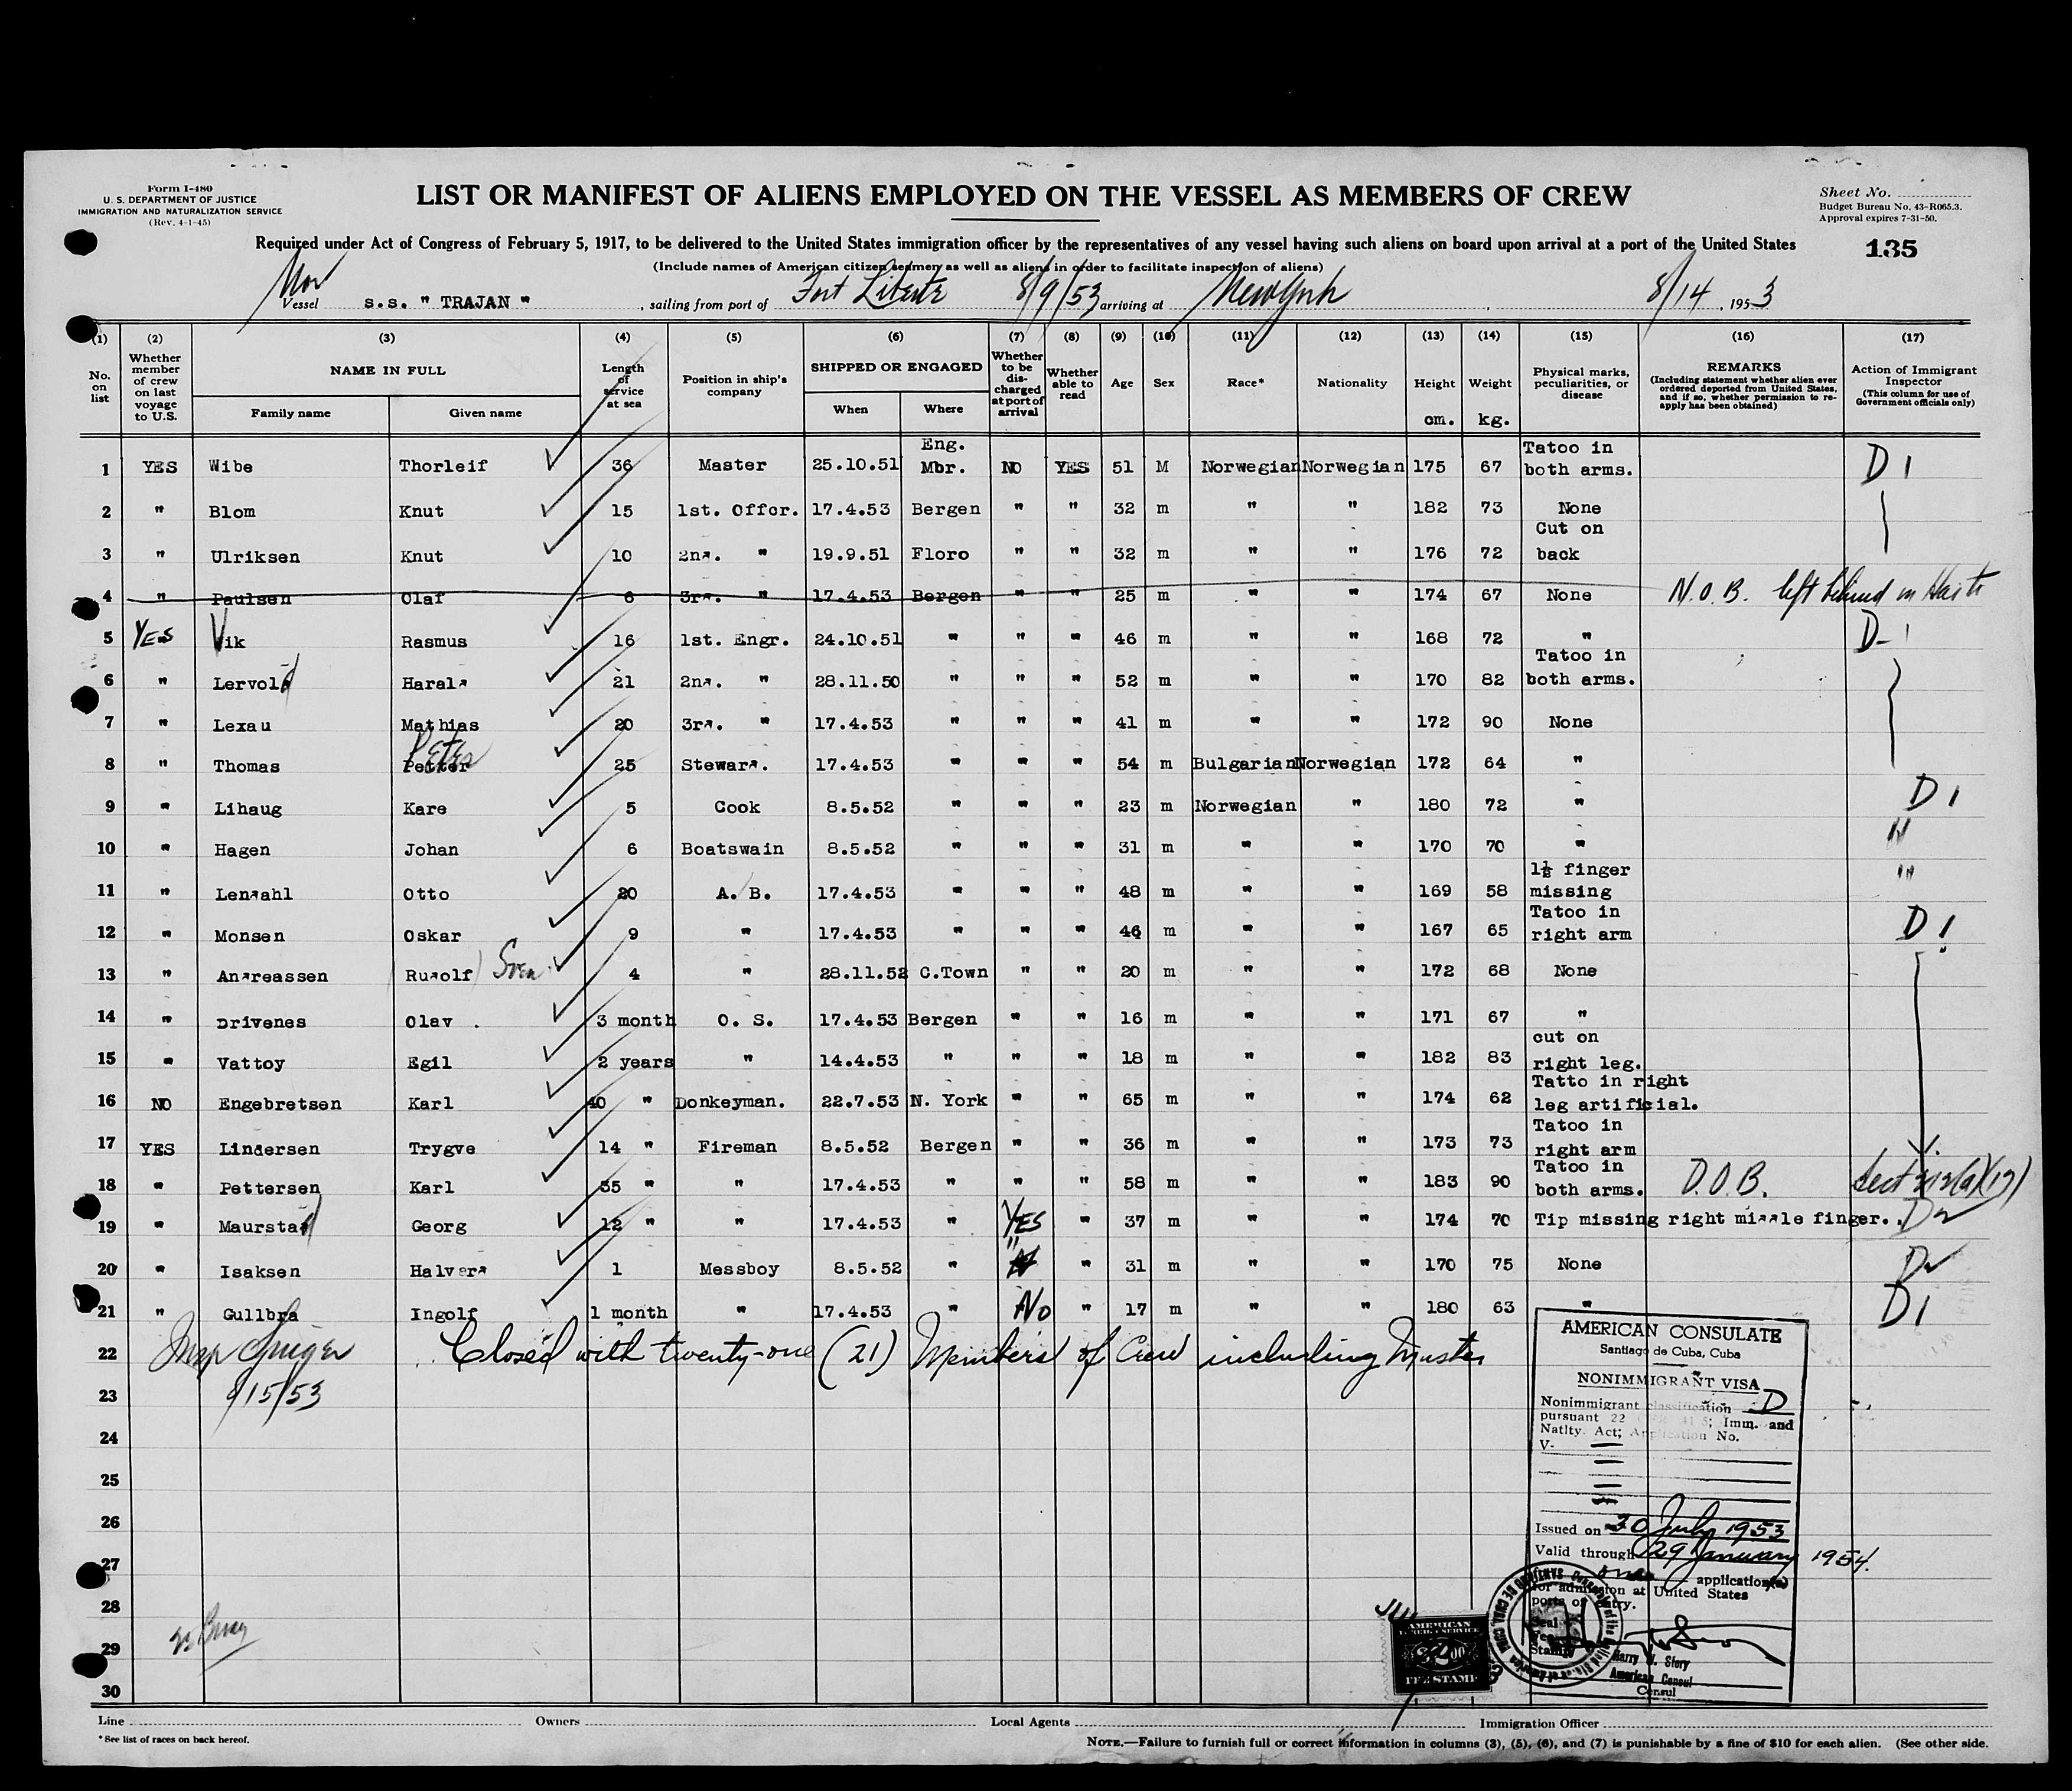 Form I-480
U. S. DEPARTMENT OF JUSTICE
IMMIGRATION AND NATURALIZATION SERVICE
(Rev. 4-1-45)
LIST OR MANIFEST OF ALIENS EMPLOYED ON THE VESSEL AS MEMBERS OF CREW
Sheet No.
Budget Bureau No. 43-R065.3.
Approval expires 7-31-50.
135
Required under Act of Congress of February 5, 1917, to be delivered to the United States immigration officer by the representatives of any vessel having such aliens on board upon arrival at a port of the United States
(Include names of American citizen seamen as well as aliens in order to facilitate inspection of aliens)
Nor
Vessel s.s. " TRAJAN " , sailing from port of Fort Liberte 8/9/53 arriving at New York , 8/14 , 1953
(1) (2) (3) (4) (5) (6) (7) (8) (9) (10) (11) (12) (13) (14) (15) (16) (17)
No. on list
Whether member of crew on last voyage to U.S.
NAME IN FULL
Family name Given name
Length of service at sea
Position in ship's company
SHIPPED OR ENGAGED
When Where
Whether to be discharged at port of arrival
Whether able to read
Age
Sex
Race*
Nationality
Height cm.
Weight kg.
Physical marks, peculiarities, or disease
REMARKS
(Including statement whether alien ever ordered deported from United States, and if so, whether permission to reapply has been obtained)
Action of Immigrant Inspector
(This column for use of Government officials only)
1 YES Wibe Thorleif 36 Master 25.10.51 Eng. Mbr. NO YES 51 M Norwegian Norwegian 175 67 Tatoo in both arms. D 1
2 " Blom Knut 15 1st. Offcr. 17.4.53 Bergen " " 32 m " " 182 73 None
3 " Ulriksen Knut 10 2nd. " 19.9.51 Floro " " 32 m " " 176 72 Cut on back
4 " Paulsen Olaf 6 3rd. " 17.4.53 Bergen " " 25 m " " 174 67 None N.O.B. left behind in Haiti
5 YES Vik Rasmus 16 1st. Engr. 24.10.51 " " " 46 m " " 168 72 " D-1
6 " Lervold Harald 21 2nd. " 28.11.50 " " " 52 m " " 170 82 Tatoo in both arms.
7 " Lexau Mathias 20 3rd. " 17.4.53 " " " 41 m " " 172 90 None
8 " Thomas Petter Peter 25 Steward. 17.4.53 " " " 54 m Bulgarian Norwegian 172 64 "
9 " Lihaug Kare 5 Cook 8.5.52 " " " 23 m Norwegian " 180 72 " D 1
10 " Hagen Johan 6 Boatswain 8.5.52 " " " 31 m " " 170 70 " "
11 " Lendahl Otto 20 A. B. 17.4.53 " " " 48 m " " 169 58 1½ finger missing "
12 " Monsen Oskar 9 " 17.4.53 " " " 46 m " " 167 65 Tatoo in right arm D 1
13 " Andreassen (Rudolf) Sven 4 " 28.11.52 C.Town " " 20 m " " 172 68 None
14 " Drivenes Olav . 3 month O. S. 17.4.53 Bergen " " 16 m " " 171 67 "
15 " Vattoy Egil 2 years " 14.4.53 " " " 18 m " " 182 83 cut on right leg.
16 NO Engebretsen Karl 40 " Donkeyman. 22.7.53 N. York " " 65 m " " 174 62 Tatto in right leg artificial.
17 YES Lindersen Trygve 14 " Fireman 8.5.52 Bergen " " 36 m " " 173 73 Tatoo in right arm
18 " Pettersen Karl 35 " " 17.4.53 " " " 58 m " " 183 90 Tatoo in both arms. D.O.B. Sect 212(a)(19)
19 " Maurstad Georg 12 " " 17.4.53 " YES " 37 m " " 174 70 Tip missing right middle finger. D2
20 " Isaksen Halvard 1 Messboy 8.5.52 " " " 31 m " " 170 75 None D2
21 " Gullbra Ingolf 1 month " 17.4.53 " No " 17 m " " 180 63 " D1
22 Closed with twenty-one (21) Members of Crew including Master
8/15/53
23
24
25
26
27
28
29
30
AMERICAN CONSULATE
Santiago de Cuba, Cuba
NONIMMIGRANT VISA
Nonimmigrant classification D
pursuant 22 41.5; Imm. and
Natlty. Act; Application No.
V-
Issued on 30 July 1953
Valid through 29 January 1954.
one application(s)
for admission at United States
ports of entry.
Seal
Fee
Stamp
Harry W. Story
American Consul
Consul
AMERICAN
$2.00
FEE STAMP
Line Owners Local Agents Immigration Officer
*See list of races on back hereof.
NOTE.—Failure to furnish full or correct information in columns (3), (5), (6), and (7) is punishable by a fine of $10 for each alien. (See other side.